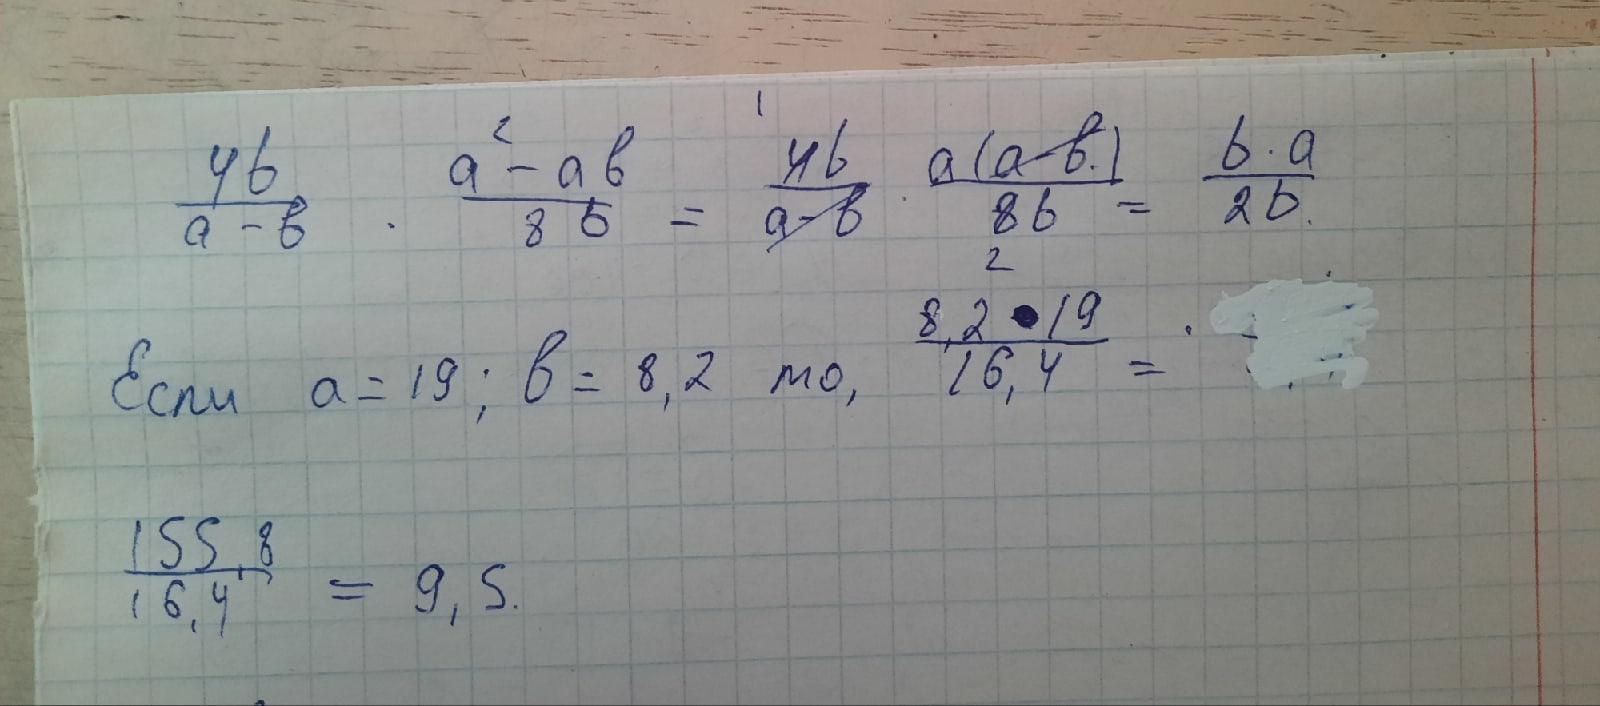 4b/(a-b) · (a²-ab)/8b = 4b/(a-b) · a(a-b)/8b = b·a/2b.
1
2
Если a=19; b=8,2 то, 8,2•19/16,4 =
155,8/16,4 = 9,5.